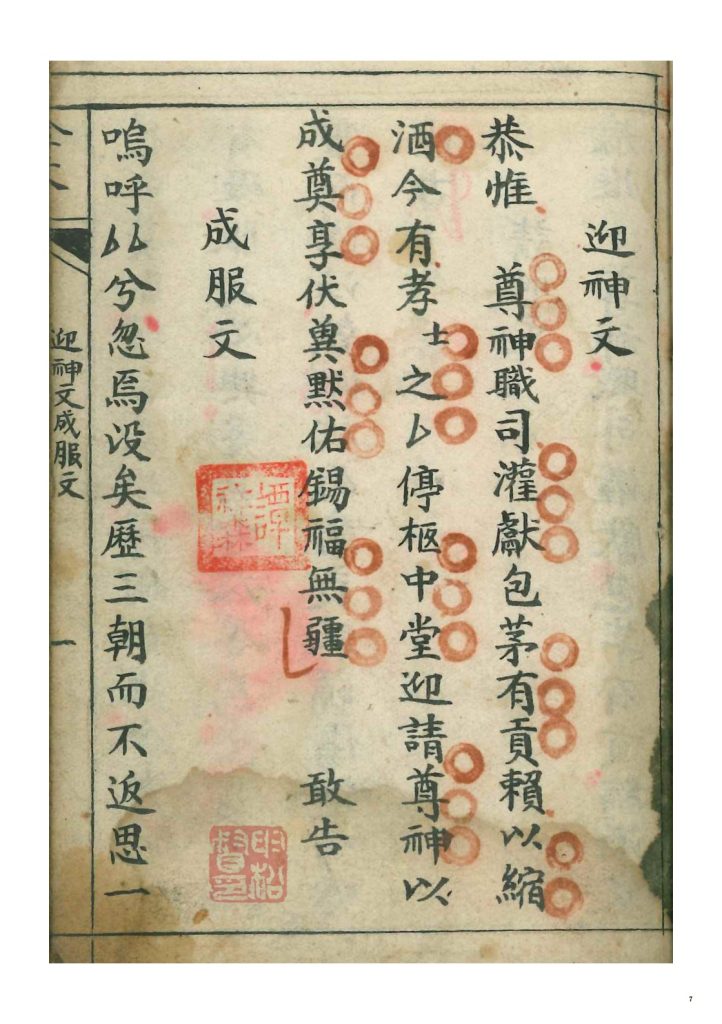 迎神文
恭惟 尊神職司灌獻包茅有貢賴以縮
酒今有孝士之厶停柩中堂迎請尊神以
成奠享伏冀默佑錫福無疆 敢告
成服文
嗚呼厶厶兮忽焉没矣歷三朝而不返思一
迎神文成服文
一
7